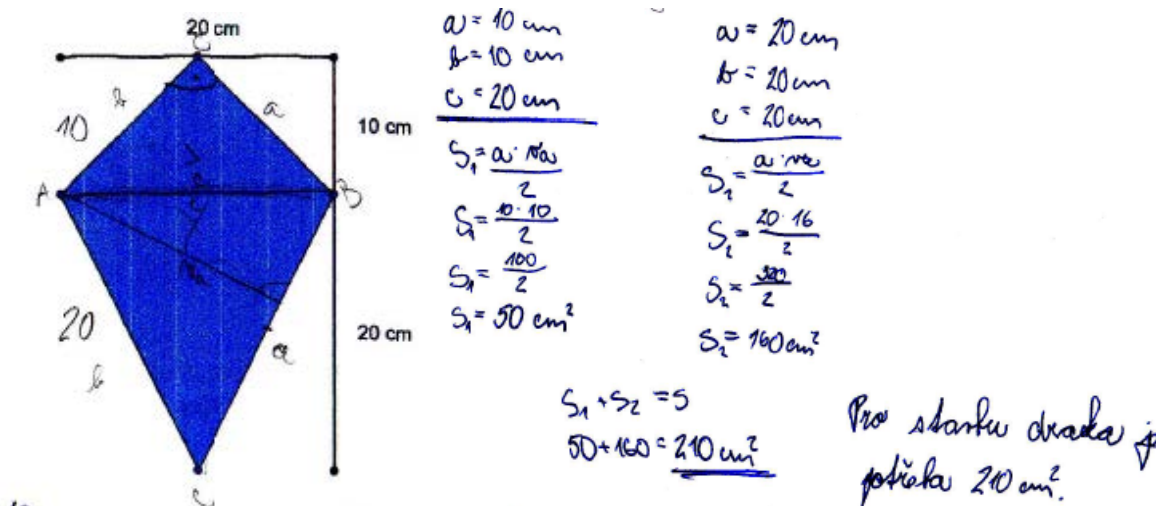 20 cm
C
b
a
10
10 cm
A
B
va
20
20 cm
a
b
C
a = 10 cm
b = 10 cm
c = 20 cm
S₁ = a · va / 2
S₁ = 10 · 10 / 2
S₁ = 100 / 2
S₁ = 50 cm²
a = 20 cm
b = 20 cm
c = 20 cm
S₂ = a · va / 2
S₂ = 20 · 16 / 2
S₂ = 320 / 2
S₂ = 160 cm²
S₁ + S₂ = S
50 + 160 = 210 cm²
Pro stavbu draka
potřeba 210 cm².